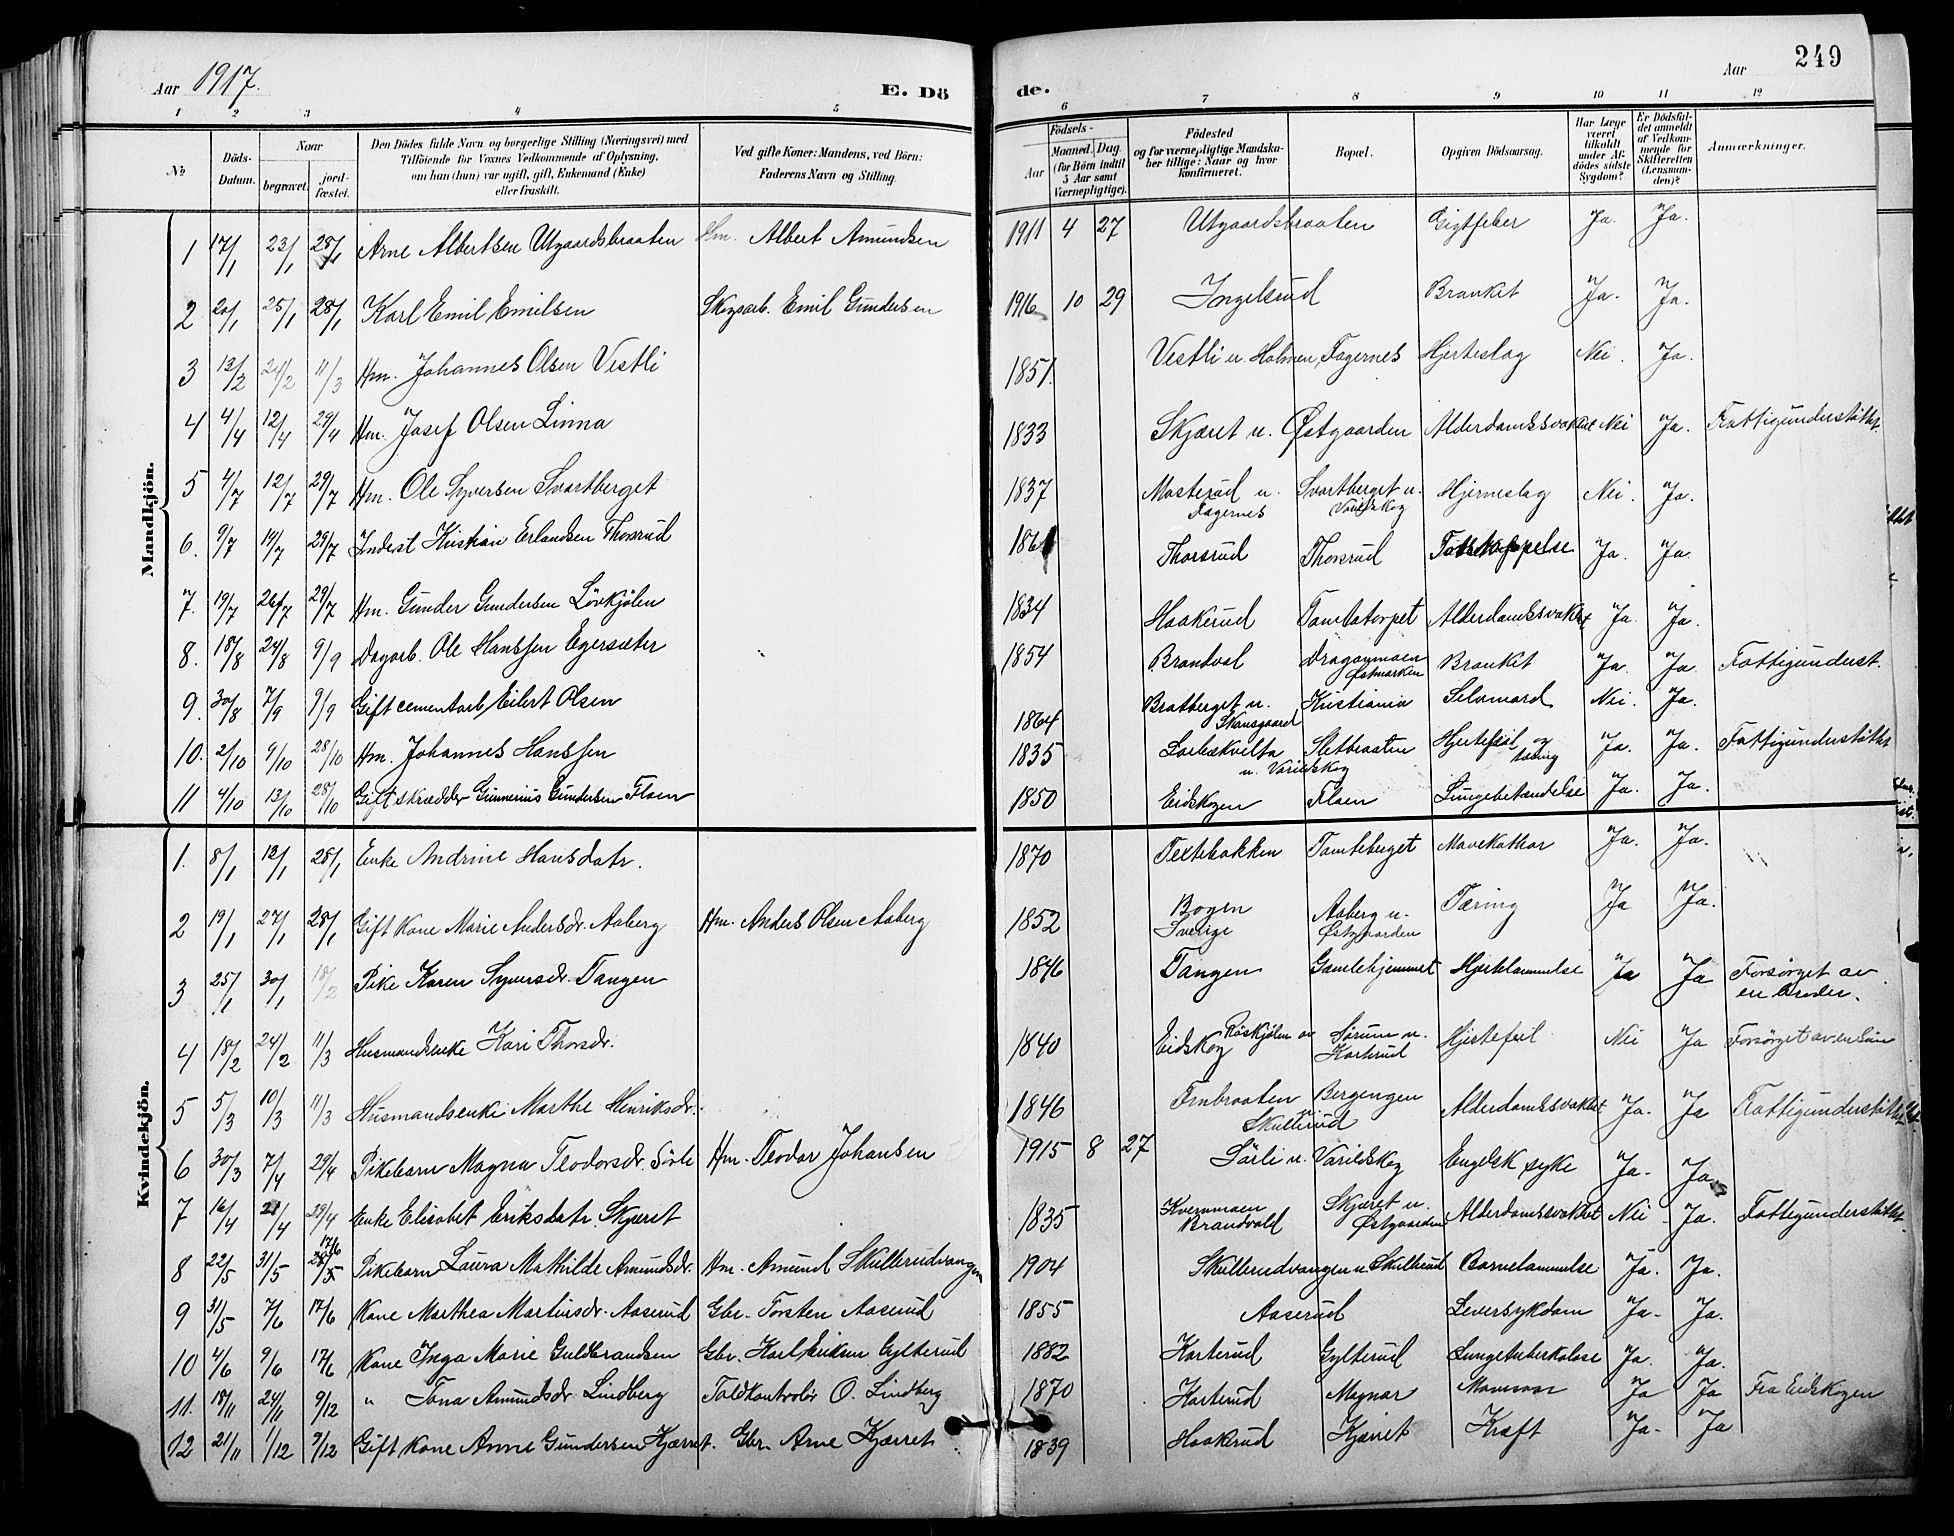 Aar 1917. E. Dö de. Aar 249
1 2 3 4 5 6 7 8 9 10 11 12
No
Döds-Datum.
Naar
begravet.
jord-fæstet.
Den Dödes fulde Navn og borgerlige Stilling (Næringsvei) med
Tilföiende for Voxnes Vedkommende af Oplysning,
om han (hun) var ugift, gift, Enkemand (Enke)
eller fraskilt.
Ved gifte Koner: Mandens, ved Börn:
Faderens Navn og Stilling.
Födsels-
Aar
Maaned. Dag.
(for Börn indtil
5 Aar samt
Værnepligtige).
Födested
og for værnepligtige Mandska-
ber tillige: Naar og hvor
konfirmeret.
Bopæl.
Opgiven Dödsaarsag.
Har Læge
været
tilkaldt
under Af-
dödes sidste
Sygdom?
Er Dödsfal-
det anmeldt
af Vedkom-
mende for
Skifteretten
(Lensman-
den)?
Anmærkninger.
Mandkjön.
1 17/1 23/1 28/1 Arne Albertsen Utgaardsbraaten Hm. Albert Amundsen 1911 4 27 Utgaardsbraaten Gigtfeber Ja. Ja.
2 20/1 25/1 28/1 Karl Emil Emilsen Skogsarb. Emil Gundersen 1916 10 29 Ingelsrud Bronkit Ja. Ja.
3 13/2 24/2 11/3 Hm. Johannes Olsen Vestli 1851. Vestli u. Holmen, Fagernes Hjerteslag Nei. Ja.
4 4/4 12/4 29/4 Hm. Josef Olsen Linna 1833 Skjæret u. Østgaarden Alderdomssvakhet Nei Ja. Fattigunderstøttet.
5 4/7 12/7 29/7 Hm. Ole Syversen Svartberget 1837 Masterud u. Fagernes Svartberget u. Varildskog Hjerneslag Nei. Ja.
6. 9/7 19/7 29/7 Inderst Kristian Erlandsen Thorsrud Thorsrud Thorsrud Ja. Ja.
7. 19/7 26/7 29/7 Hm. Gunder Gundersen Løvkjølen 1834 Haakerud Tambatorpet Alderdomssvakhet Ja. Ja.
8. 18/8 24/8 9/9 Dagarb. Ole Hanssen Egersæter 1854 Brandval Dragonmoen Østmarken Bronkit Ja. Ja. Fattigunderst.
9. 30/8 7/9 9/9 Gift cementarb. Eilert Olsen 1864 Bratberget u. Skansgaard Kristiania Selvmord Nei. Ja.
10. 2/10 9/10 28/10 Hm. Johannes Hanssen 1835 u. Varildskog Sletbraaten Hjertefeil og tæring Ja. Ja. Fattigunderstøttet
11 4/10 13/10 28/10 Gift skrædder Gunnerius Gundersen Floen 1850 Eidskogen Floen Lungebetændelse Ja. Ja.
Kvindekjön.
1. 8/1 12/1 28/1 Enke Andrine Hansdatr. 1870 Teltebakken Tomteberget Mavekatthar Ja. Ja.
2 19/1 27/1 28/1 Gift kone Marie Andersdr. Aaberg Hm. Anders Olsen Aaberg 1852 Bogen Sverige Aaberg u. Østgaarden Tæring Ja Ja.
3 25/1 30/1 18/2 Pike Karen Syversdr. Tangen 1846 Tangen Gamlehjemmet Hjertelammelse Ja Ja Forsørget av en broder.
4 18/2 24/2 11/3 Husmandsenke Kari Thorsdr. 1840 Eidskog Sørum u. Karterud Hjertefeil Nei Ja Forsørget av en søn
5 5/3 10/3 11/3 Husmandsenke Marthe Henriksdr. 1846 Bergengen u. Skullerud Alderdomssvakhet Ja. Ja Fattigunderstøttet
6 30/3 7/4 29/4 Pikebarn Magna Teodorsdr. Sörli Hm. Teodor Johansen 1915 8 27 Sörli u. Varildskog Engelsk syke Ja. Ja.
7 16/4 21/4 29/4 Enke Elisabet Eriksdatr. Skjæret 1835 Kvernmoen Brandvold Skjæret u. Østgaarden Alderdomssvakhet Nei Ja. Fattigunderstøttet.
8 22/5 31/5 28/5 17/6 Pikebarn Laura Mathilde Amundsdr. Hm. Amund Skullerudvangen 1904 Skullerudvangen u. Skullerud Barnelammelse Ja. Ja.
9 31/5 7/6 17/6 Kone Marthea Martinsdr. Aaserud Gbr. Torsten Aaserud 1855 Aaserud Leversykdom Ja. Ja.
10 4/6 9/6 17/6 Kone Inga Marie Guldbrandsen Gbr. Karl Eriksen Gylterud 1882 Karterud Gylterud Lungetuberkulose Ja. Ja.
11. 18/11 24/11 9/12 " Tona Amundsdr. Lindberg Toldkontrolør O. Lindberg 1870 Karterud Magnor Mavesaar Ja Ja Fra Eidskogen
12 21/11 1/12 9/12 Gift kone Anne Gundersen Kjærret. Gbr. Arne Kjærret 1839 Haakerud Kjærret Kræft Ja. Ja